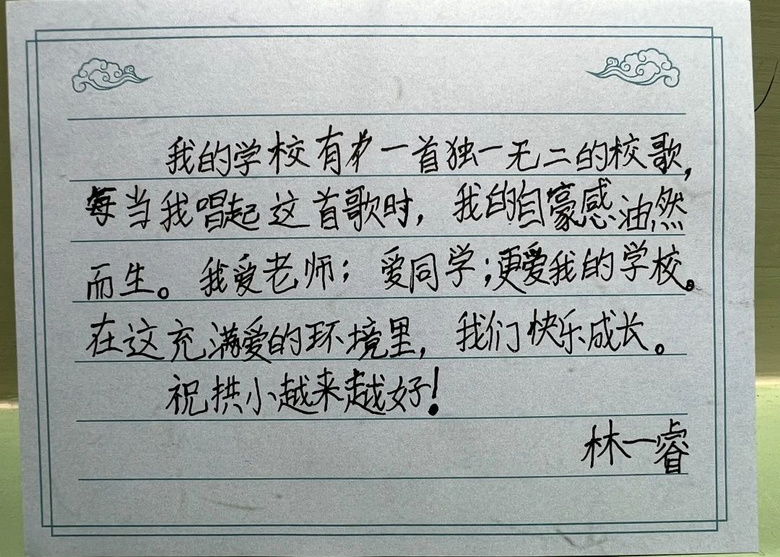 我的学校有一首独一无二的校歌，
每当我唱起这首歌时，我的自豪感油然
而生。我爱老师；爱同学；更爱我的学校。
在这充满爱的环境里，我们快乐成长。
祝拱小越来越好！
林一睿